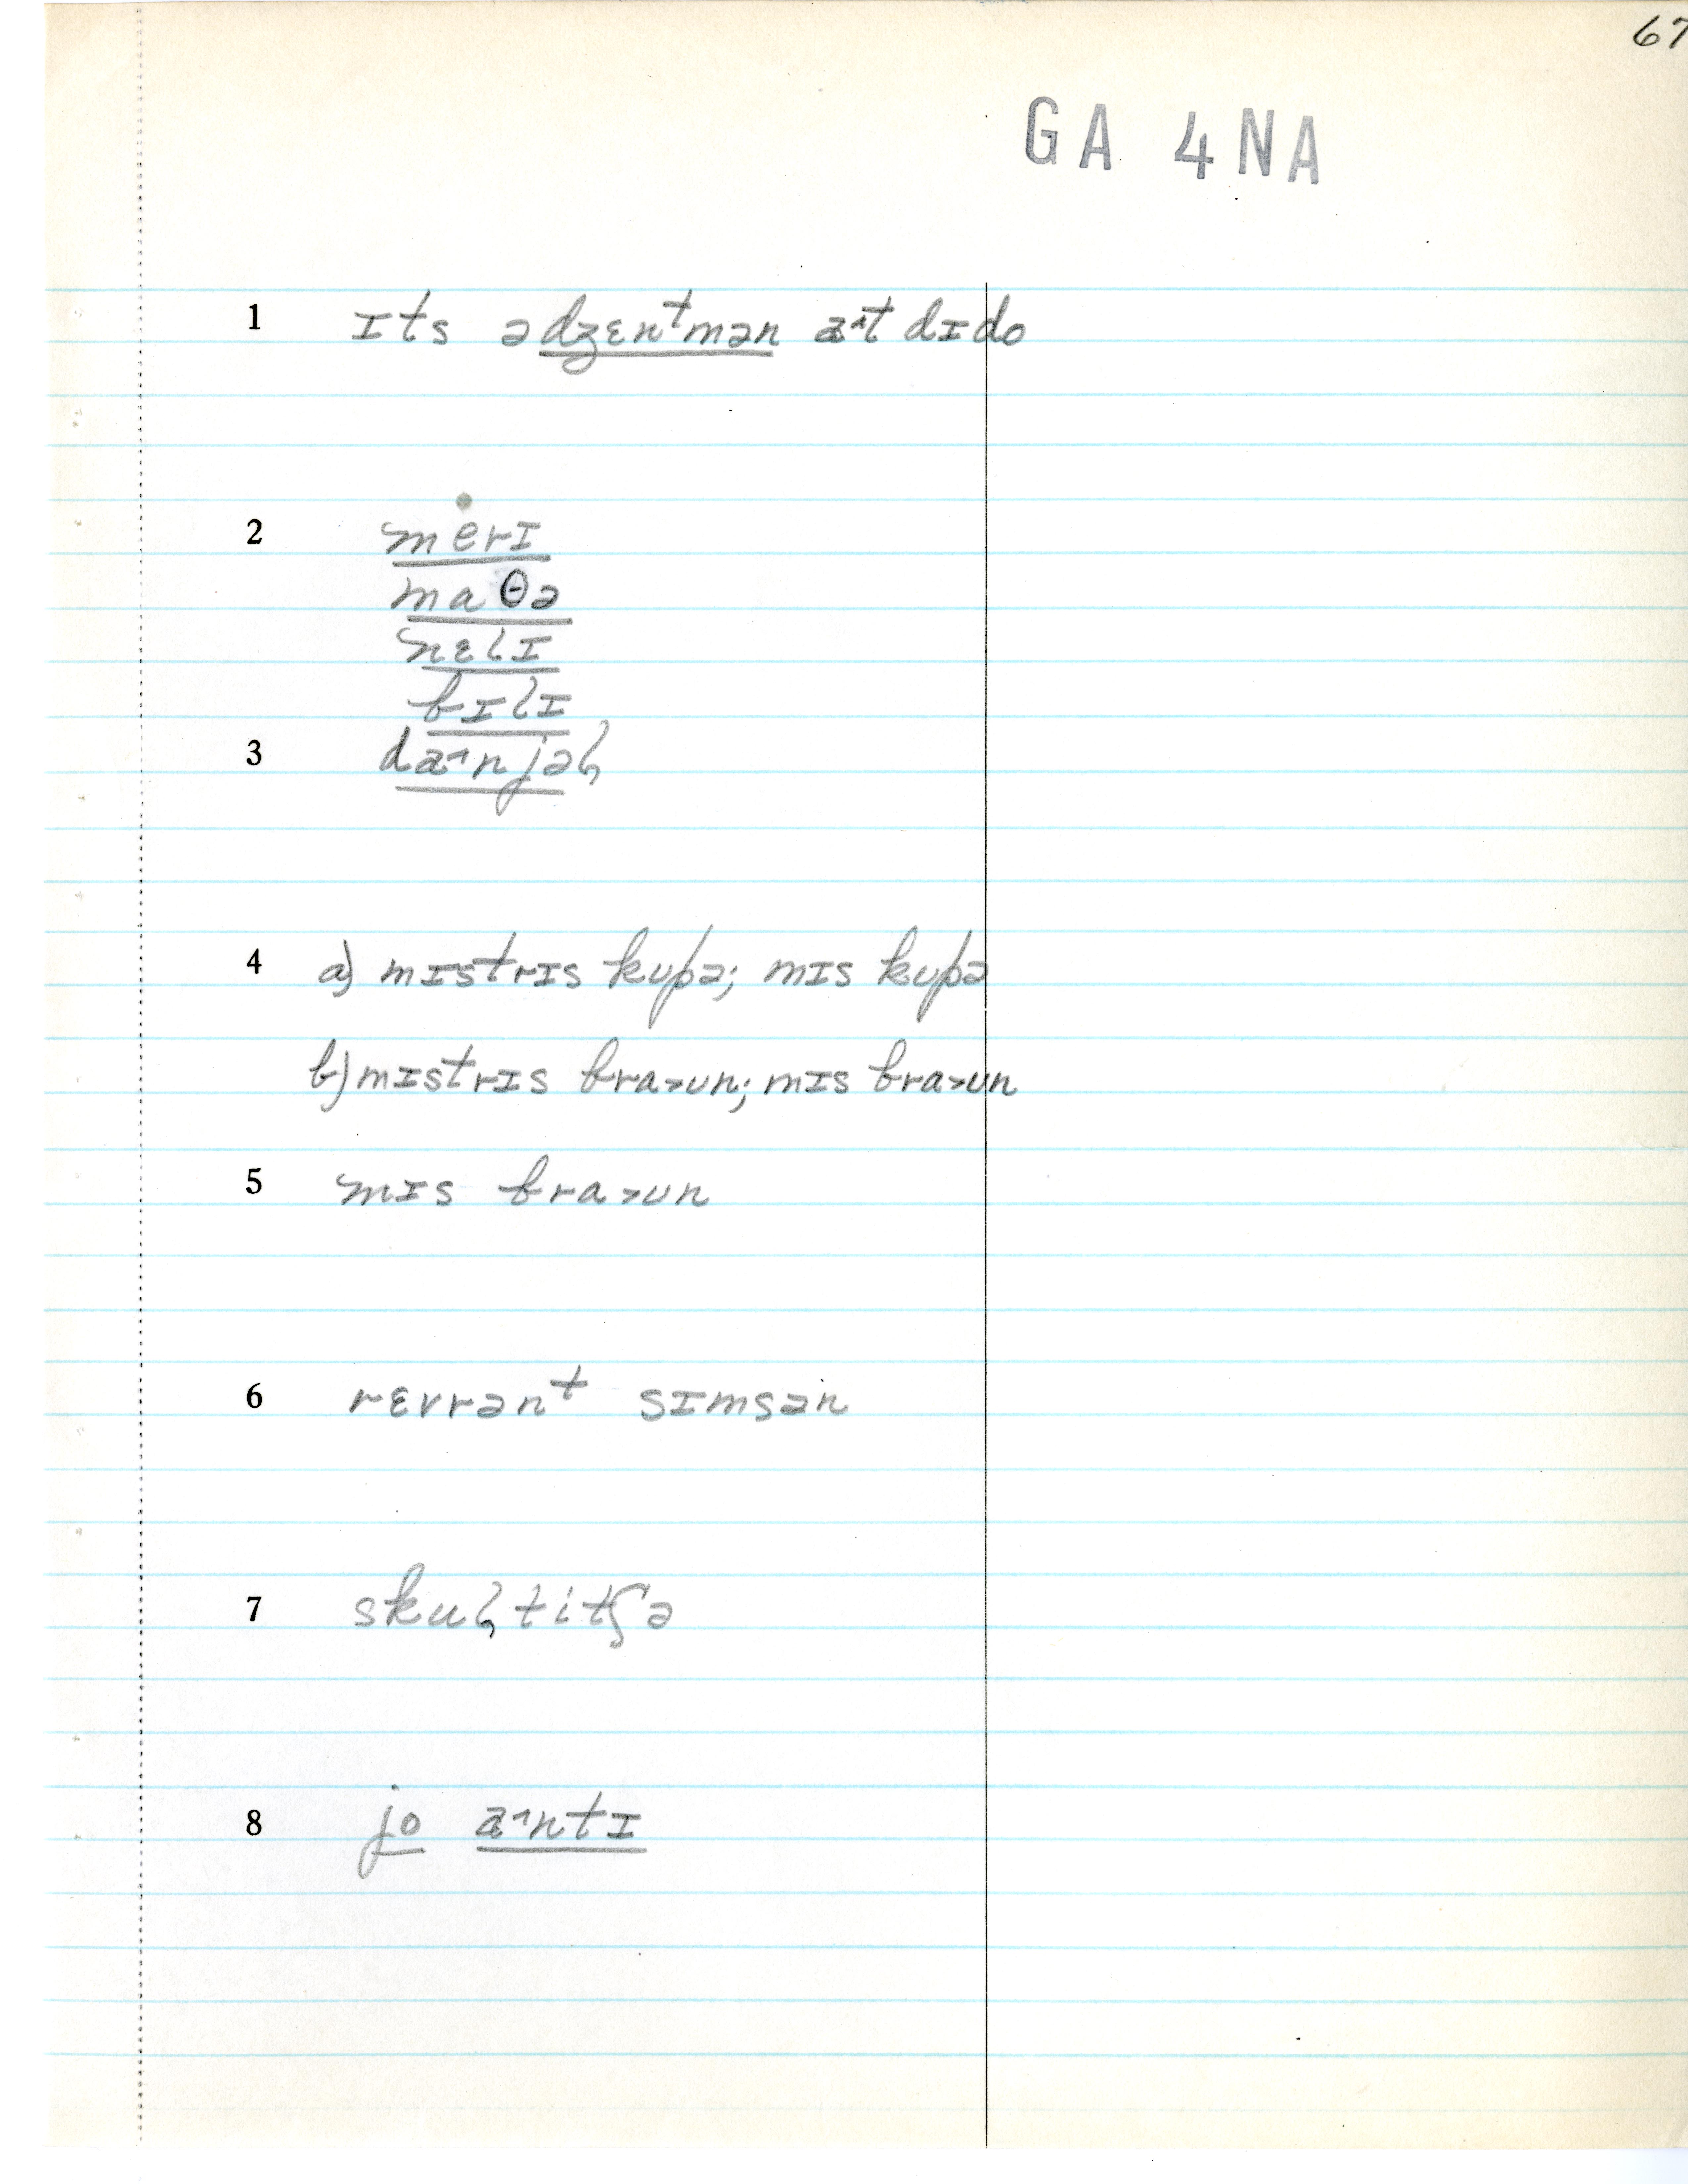 67
GA 4NA
1 ɪts ə dʒɛnᵗmən a˄t dɪdo
2 merɪ
maθə
nɛlɪ
bɪlɪ
3 da˄njəl̡
4 a) mɪstrɪs kupə; mɪs kupə
b) mɪstrɪs bra˃ʊn; mɪs bra˃ʊn
5 mɪs bra˃ʊn
6 rɛvrənᵗ sɪmsən
7 skul̡titʃə
8 jo a˄ntɪ